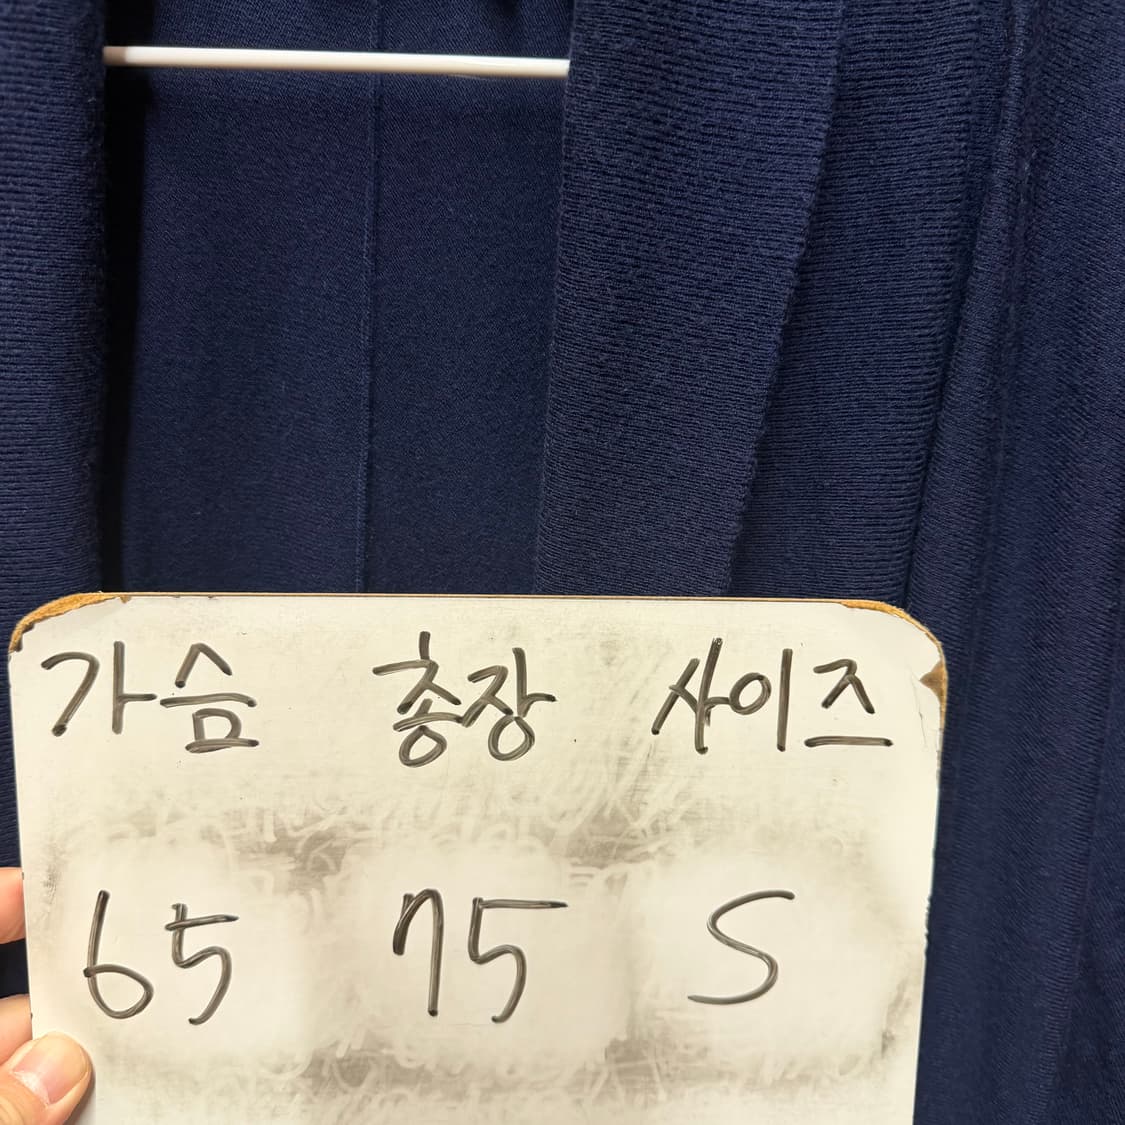 가슴 총장 사이즈
65 75 S